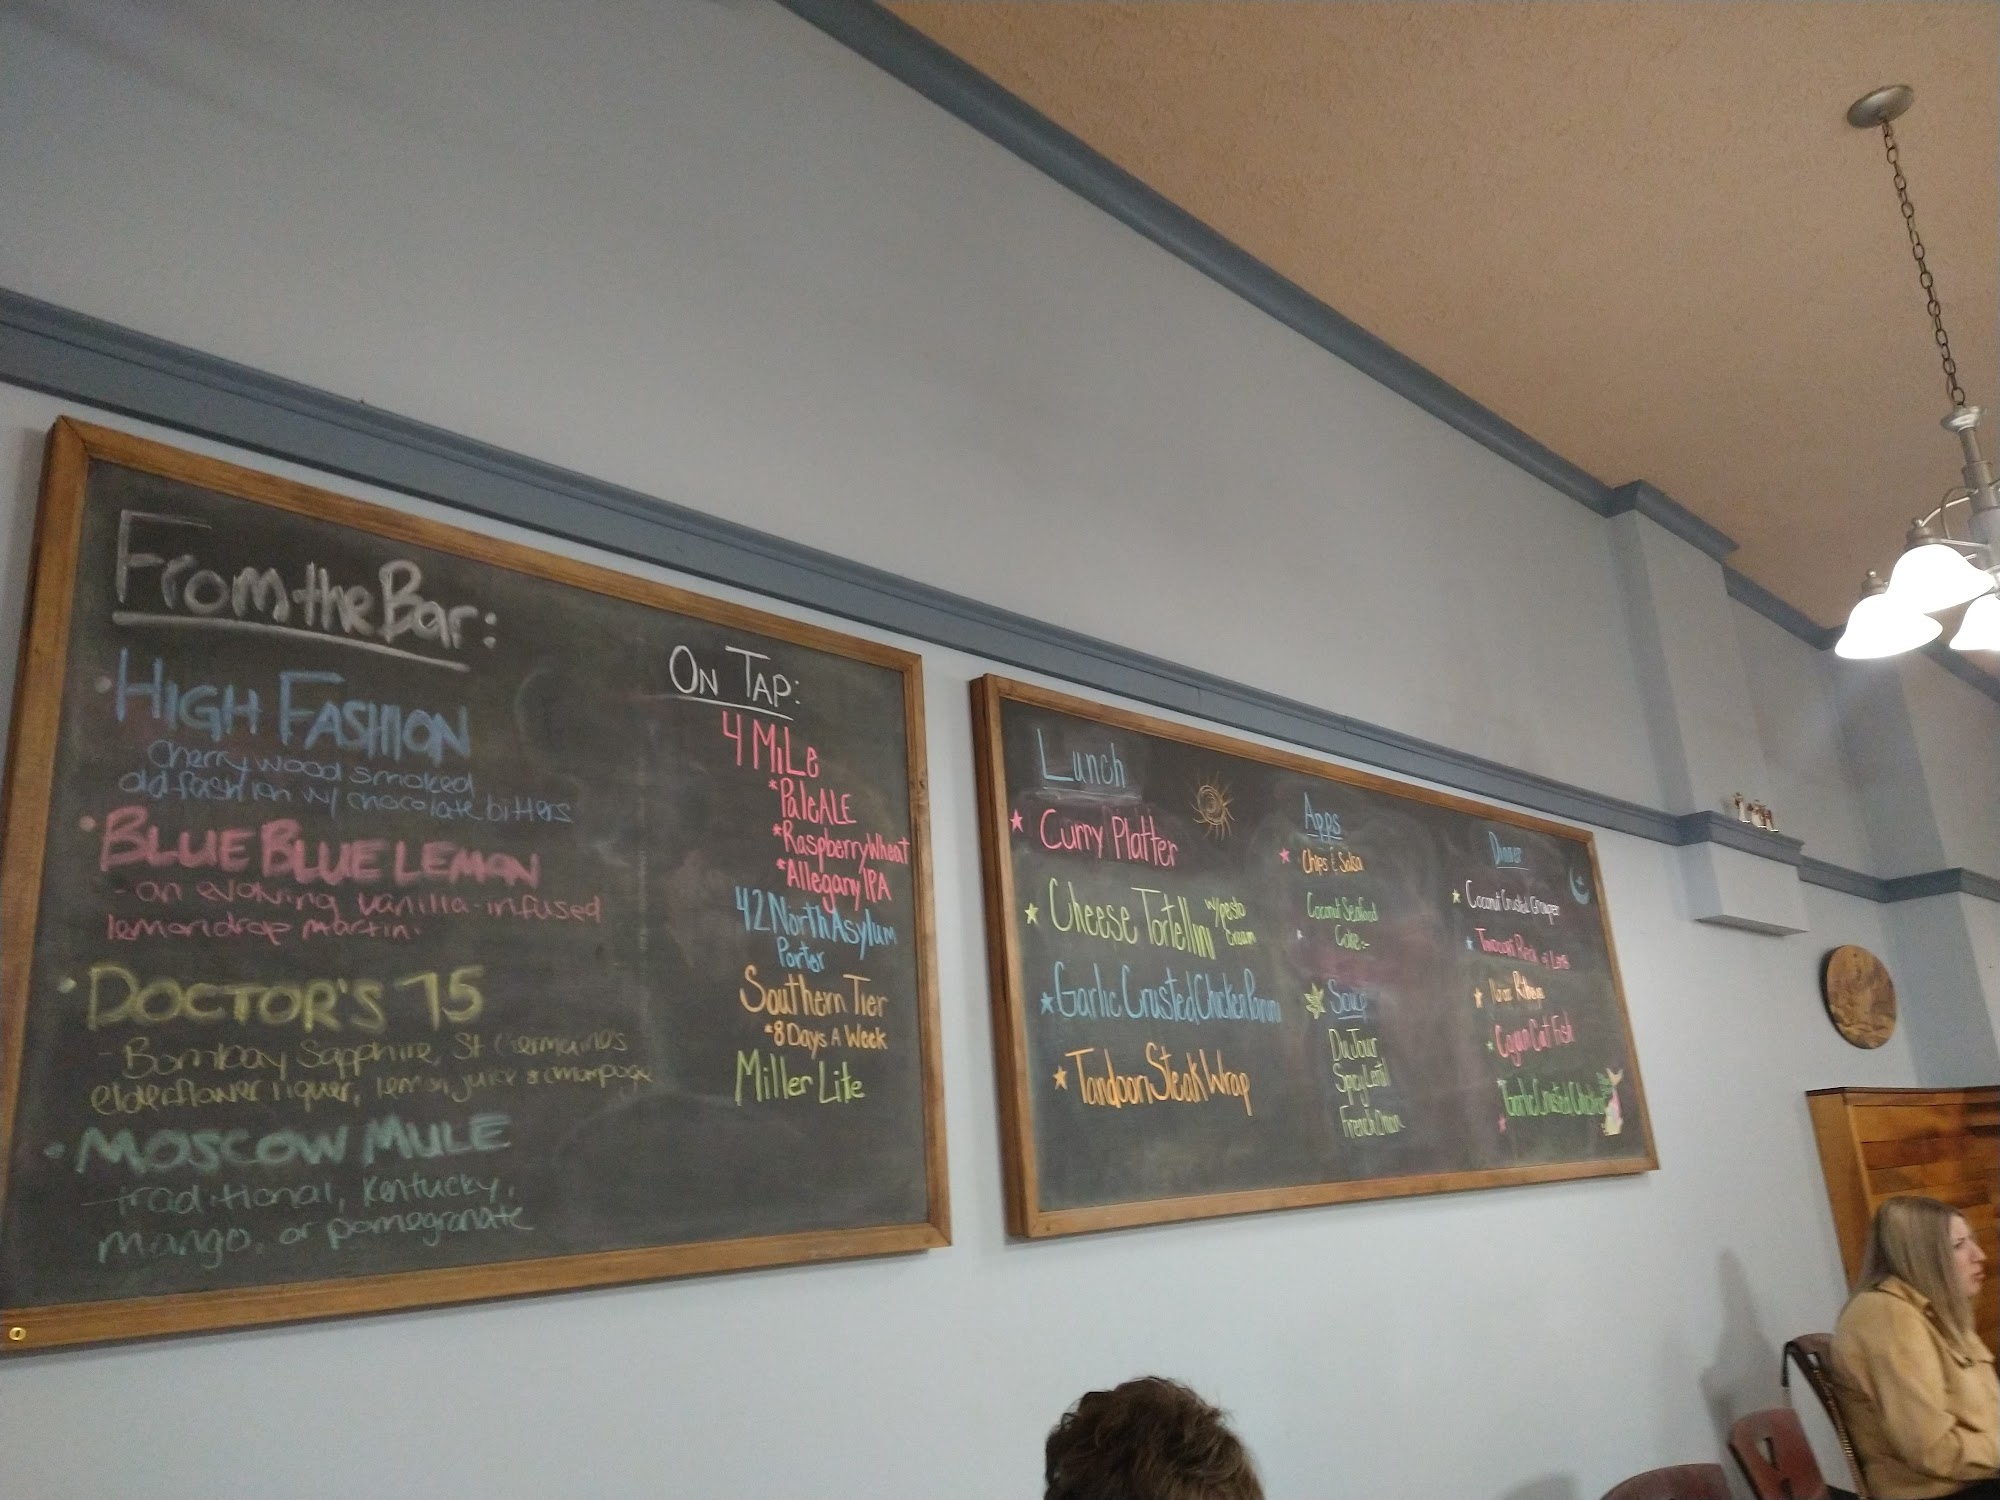 From the Bar:
HIGH FASHION
Cherry wood smoked
old fashion w/ chocolate bitters
BLUE BLUE LEMON
- an evolving vanilla-infused
lemondrop martini
DOCTOR'S 75
- Bombay Sapphire, St Germaine's
elderflower liquer, lemon juice &
MOSCOW MULE
traditional, Kentucky,
mango, or pomegranate
ON TAP:
4 MiLe
*Pale ALE
*Raspberry Wheat
*Allegany IPA
42 North Asylum
Porter
Southern Tier
*8 Days A Week
Miller Lite
Lunch
Curry Platter
Cheese Tortellini w/pesto
Cream
Garlic Crusted Chicken Panini
Tandoori Steak Wrap
Apps
Chips & Salsa
Coconut Seafood
Cake
Soup
Du Jour
Spicy Lentil
French Onion
Dinner
Coconut Crusted Grouper
Tandoori Rack of Lamb
Ribeye
Cajun Cat Fish
Garlic Crusted Chicken